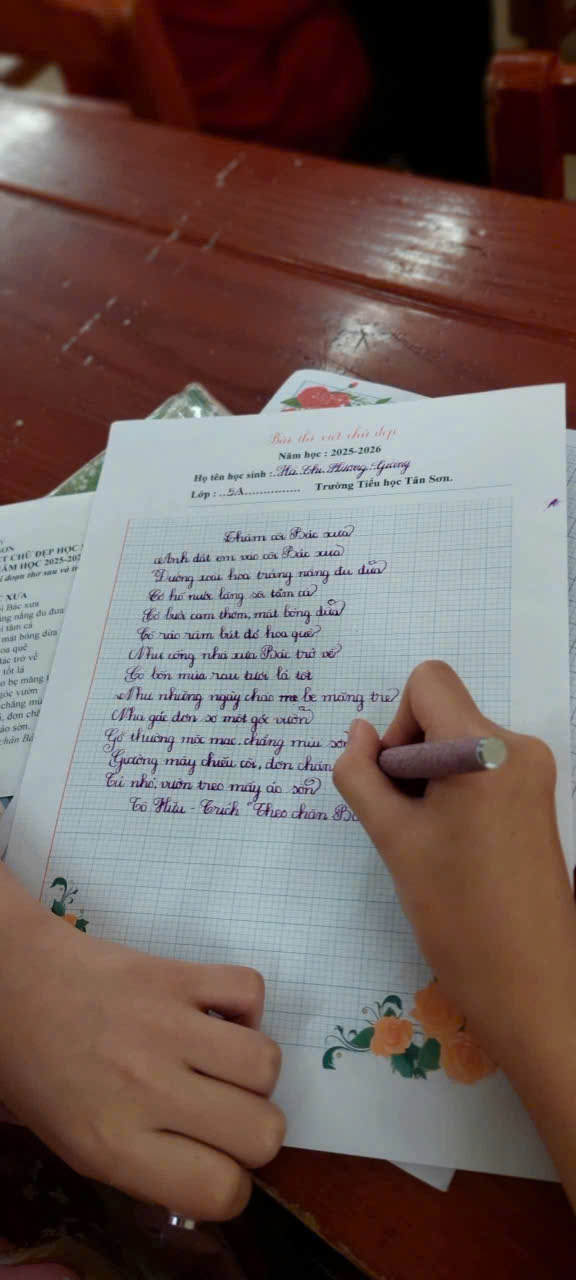 Bài thi viết chữ đẹp
Năm học : 2025-2026
Họ tên học sinh : Hà Thị Hương Giang
Lớp : ..5A............... Trường Tiểu học Tân Sơn.
Thăm cõi Bác xưa
Anh dắt em vào cõi Bác xưa
Đường xoài hoa trắng nắng đu đưa
Có hồ nước lặng sôi tăm cá
Có bưởi cam thơm, mát bóng dừa
Có rào râm bụt đỏ hoa quê
Như cổng nhà xưa Bác trở về
Có bốn mùa rau tươi lá tốt
Như những ngày cháo bẹ măng tre
Nhà gác đơn sơ một góc vườn
Gỗ thường mộc mạc, chẳng mùi sơn
Giường mây chiếu cói, đơn chăn
Tủ nhỏ, vườn treo mấy áo sờn
Tố Hữu - Trích "Theo chân Bá
SƠN
T CHỮ ĐẸP HỌC
ĂM HỌC 2025-202
i đoạn thơ sau và tr
C XƯA
i Bác xưa
ng nắng đu đưa
i tăm cá
mát bóng dừa
oa quê
Bác trở về
i tốt lá
o bẹ măng t
góc vườn
chẳng mù
i, đơn chă
áo sờn.
chân Bá